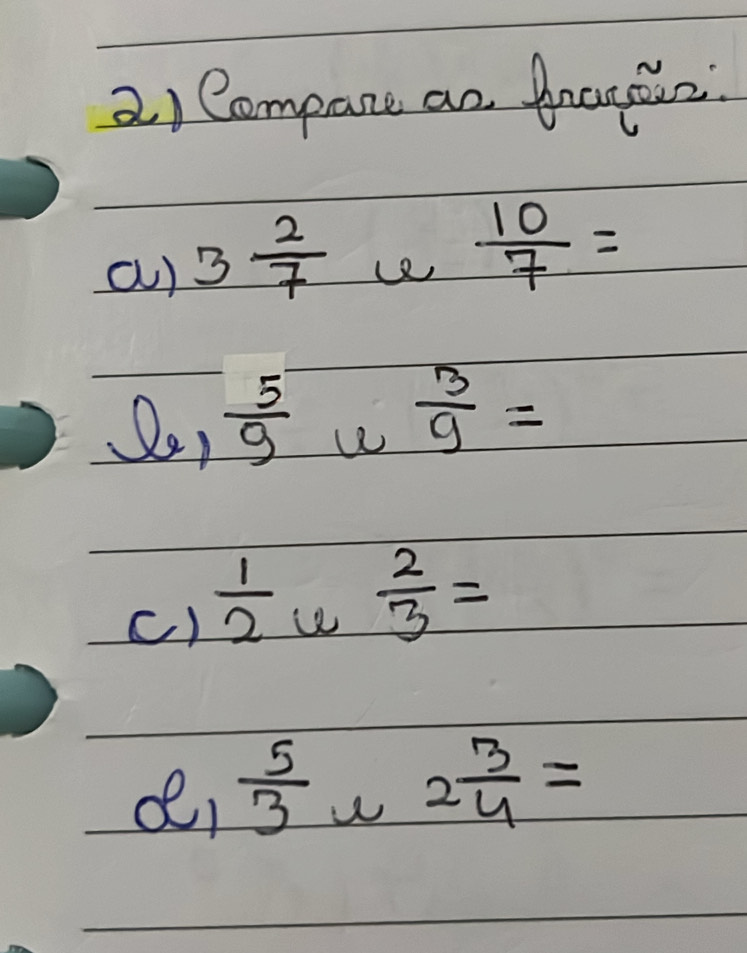 2) Compare as frações:
a) 3 2/7 e 10/7 =
b) 5/9 e 3/9 =
c) 1/2 e 2/3 =
d) 5/3 e 2 3/4 =